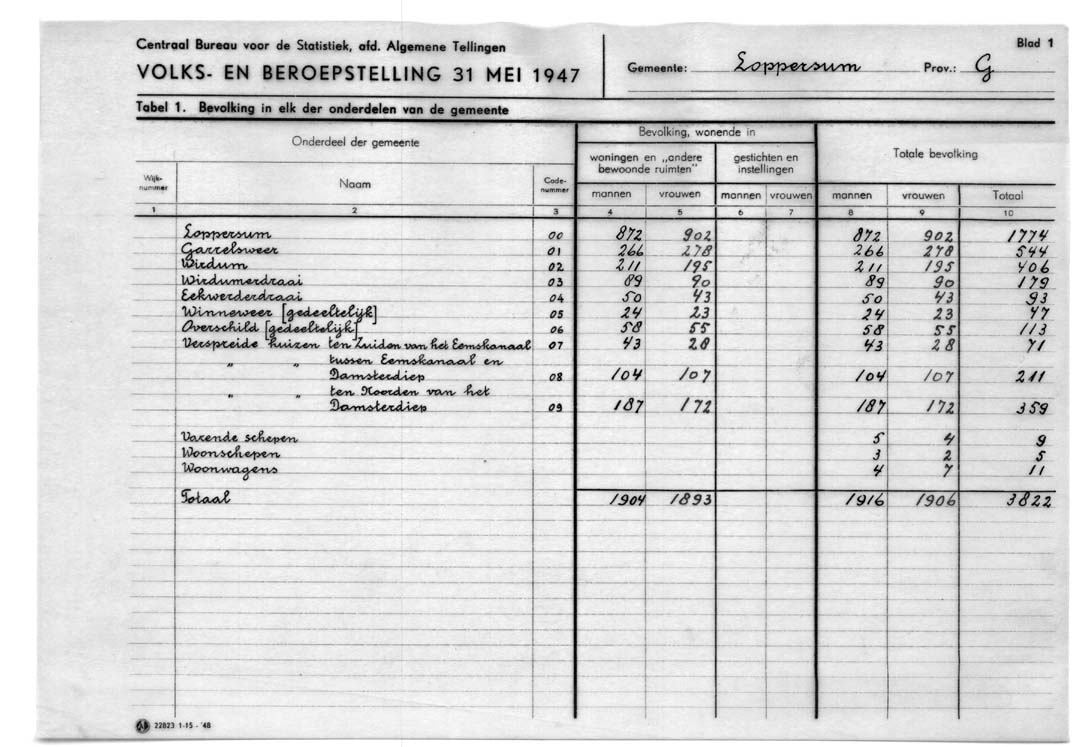 Centraal Bureau voor de Statistiek, afd. Algemene Tellingen
VOLKS- EN BEROEPSTELLING 31 MEI 1947
Gemeente: Loppersum Prov.: G
Blad 1
Tabel 1. Bevolking in elk der onderdelen van de gemeente
Onderdeel der gemeente
Bevolking, wonende in
woningen en „andere bewoonde ruimten"
gestichten en instellingen
Totale bevolking
Wijk-nummer Naam Code-nummer mannen vrouwen mannen vrouwen mannen vrouwen Totaal
1 2 3 4 5 6 7 8 9 10
Loppersum 00 872 902 872 902 1774
Garrelsweer 01 266 278 266 278 544
Wirdum 02 211 195 211 195 406
Wirdumerdraai 03 89 90 89 90 179
Eekwerderdraai 04 50 43 50 43 93
Winneweer [gedeeltelijk] 05 24 23 24 23 47
Overschild [gedeeltelijk] 06 58 55 58 55 113
Verspreide huizen ten Zuiden van het Eemskanaal 07 43 28 43 28 71
„ „ tussen Eemskanaal en
Damsterdiep 08 104 107 104 107 211
„ „ ten Noorden van het
Damsterdiep 09 187 172 187 172 359
Varende schepen 5 4 9
Woonschepen 3 2 5
Woonwagens 4 7 11
Totaal 1904 1893 1916 1906 3822
22823 1-15 - '48